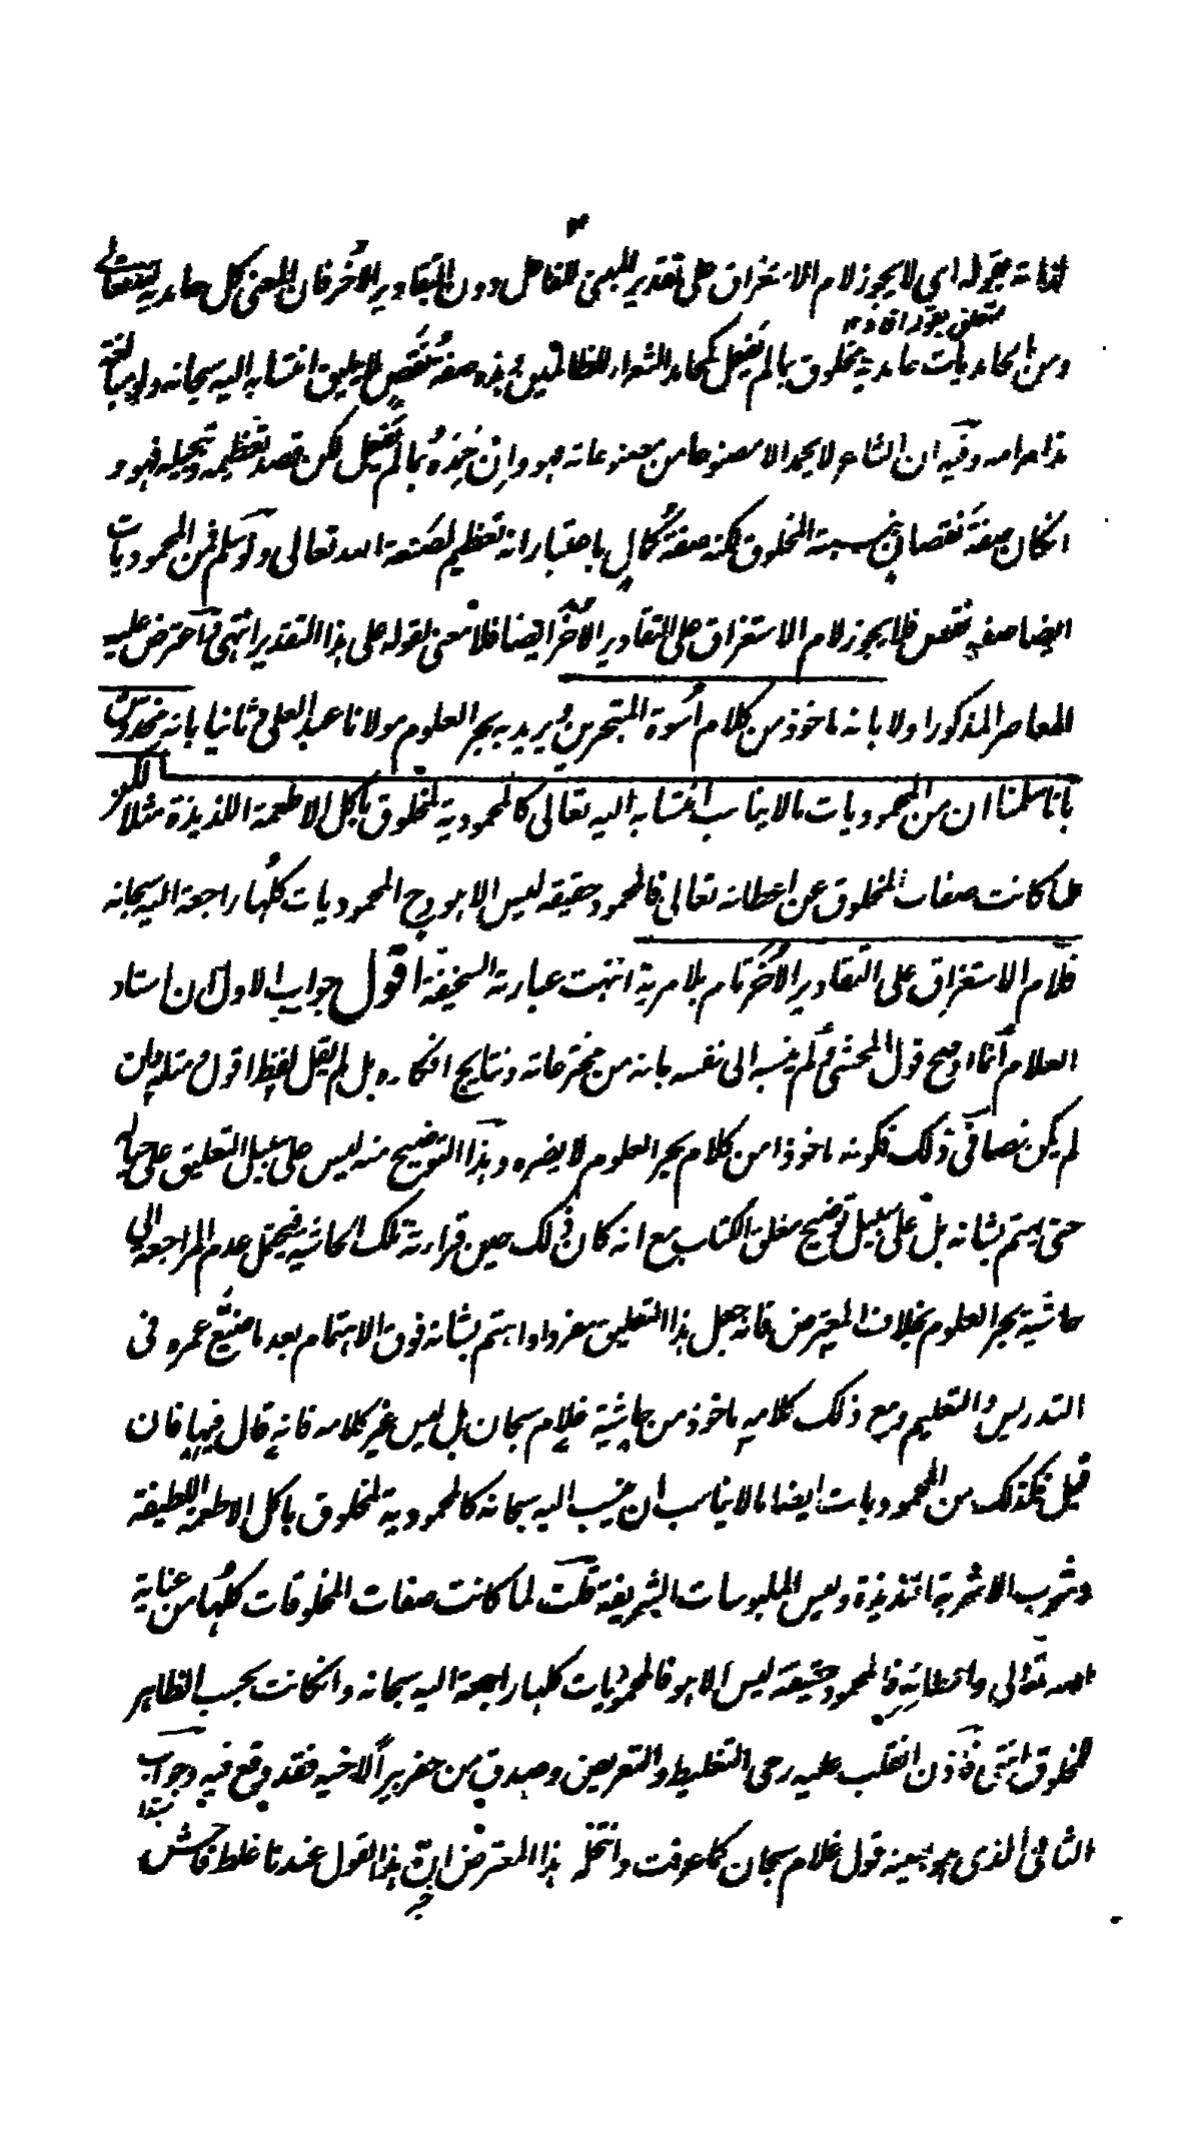 ٣
افاده بقوله اى لا يجوز لام الاستغراق على تقدير المبنى للفاعل دون التقادير الأخر فان المعنى كل حامدية لله تعالى
متعلق بقوله افاده ١٢
ومن الحامديات حامدية مخلوق بما لم يفعل كحامد الشعراء للظالمين وهذه صفة نقص لا يليق انتسابه اليه سبحانه ولو مبالغة
هذا مرامه وفيه ان الشاعر لا يحمد الا مصنوعا من مصنوعاته فهو وان حمده بما لم يفعل لكن قصد تعظيمه وتبجيله فهو و
انكان صفة نقصان بنسبة المخلوق لكنه صفة كمال باعتبار انه تعظيم لصنعة الله تعالى ولو سلم فمن المحموديات
ايضا صفة نقص فلا يجوز لام الاستغراق على التقادير الأخر ايضا فلا معنى لقوله على هذا التقدير انتهى فاعترض عليه
المعاصر المذكور اولا بانه ماخوذ من كلام أسوة المتبحرين يريد به بحر العلوم مولانا عبد العلى وثانيا بانه مخدوش
بانا سلمنا ان من المحموديات ما لا يناسب انتسابه اليه تعالى كالمحمودية لمخلوق باكل الاطعمة اللذيذة مثلا لكن
لما كانت صفات المخلوق عن اعطائه تعالى فالمحمود حقيقة ليس الا هو وح المحموديات كلها راجعة اليه سبحانه
فلام الاستغراق على التقادير الأخر تام بلا مرية انتهت عبارته السخيفة اقول جواب الاول ان استاد
العلام انما اوضح قول المحشى ولم ينسبه الى نفسه بانه من مخترعاته ونتايج افكاره بل لم يقل لفظ اقول ومثله وان
لم يكن نصا فى ذلك فكونه ماخوذا من كلام بحر العلوم لا يضره وهذا التوضيح منه ليس على سبيل التعليق على حياله
حتى يهتم بشانه بل على سبيل توضيح مغلق الكتاب مع انه كان ذلك حين قراءته تلك الحاشية فيحتمل عدم المراجعة الى
حاشية بحر العلوم بخلاف المعترض فانه جعل هذا التعليق مغردا واهتم بشانه فوق الاهتمام بعد ما ضيّع عمره فى
التدريس والتعليم ومع ذلك كلامه ماخوذ من حاشية غلام سبحان بل ليس غير كلامه فانه قال فيها فان
قيل فكذلك من المحموديات ايضا ما لا يناسب ان ينسب اليه سبحانه كالمحمودية لمخلوق باكل الاطعمة اللطيفة
وشرب الاشربة اللذيذة ولبس الملبوسات الشريفة قلت لما كانت صفات المخلوقات كلها من عناية
الله تعالى واعطائه فالمحمود حقيقة ليس الا هو فالمحموديات كلها راجعة اليه سبحانه وانكانت بحسب الظاهر
للمخلوق انتهى فاذن انقلب عليه رحى التغليط والتعريض وصدق من حفر بيرا لاخيه فقد وقع فيه وجواب
مبتدا
الثانى الذى هو بعينه قول غلام سبحان كما عرفت وانتحله هذا المعترض ان هذا القول عندنا غلط فاحش
خبر